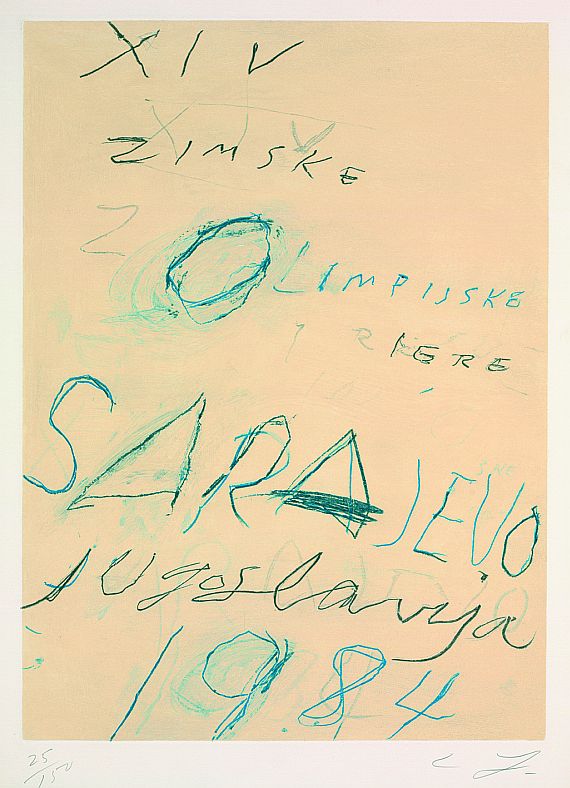 XIV
ZIMSKE
Z
OLIMPIJSKE
RIERE
SARAJEVO
Jugoslavija
1984
25/150